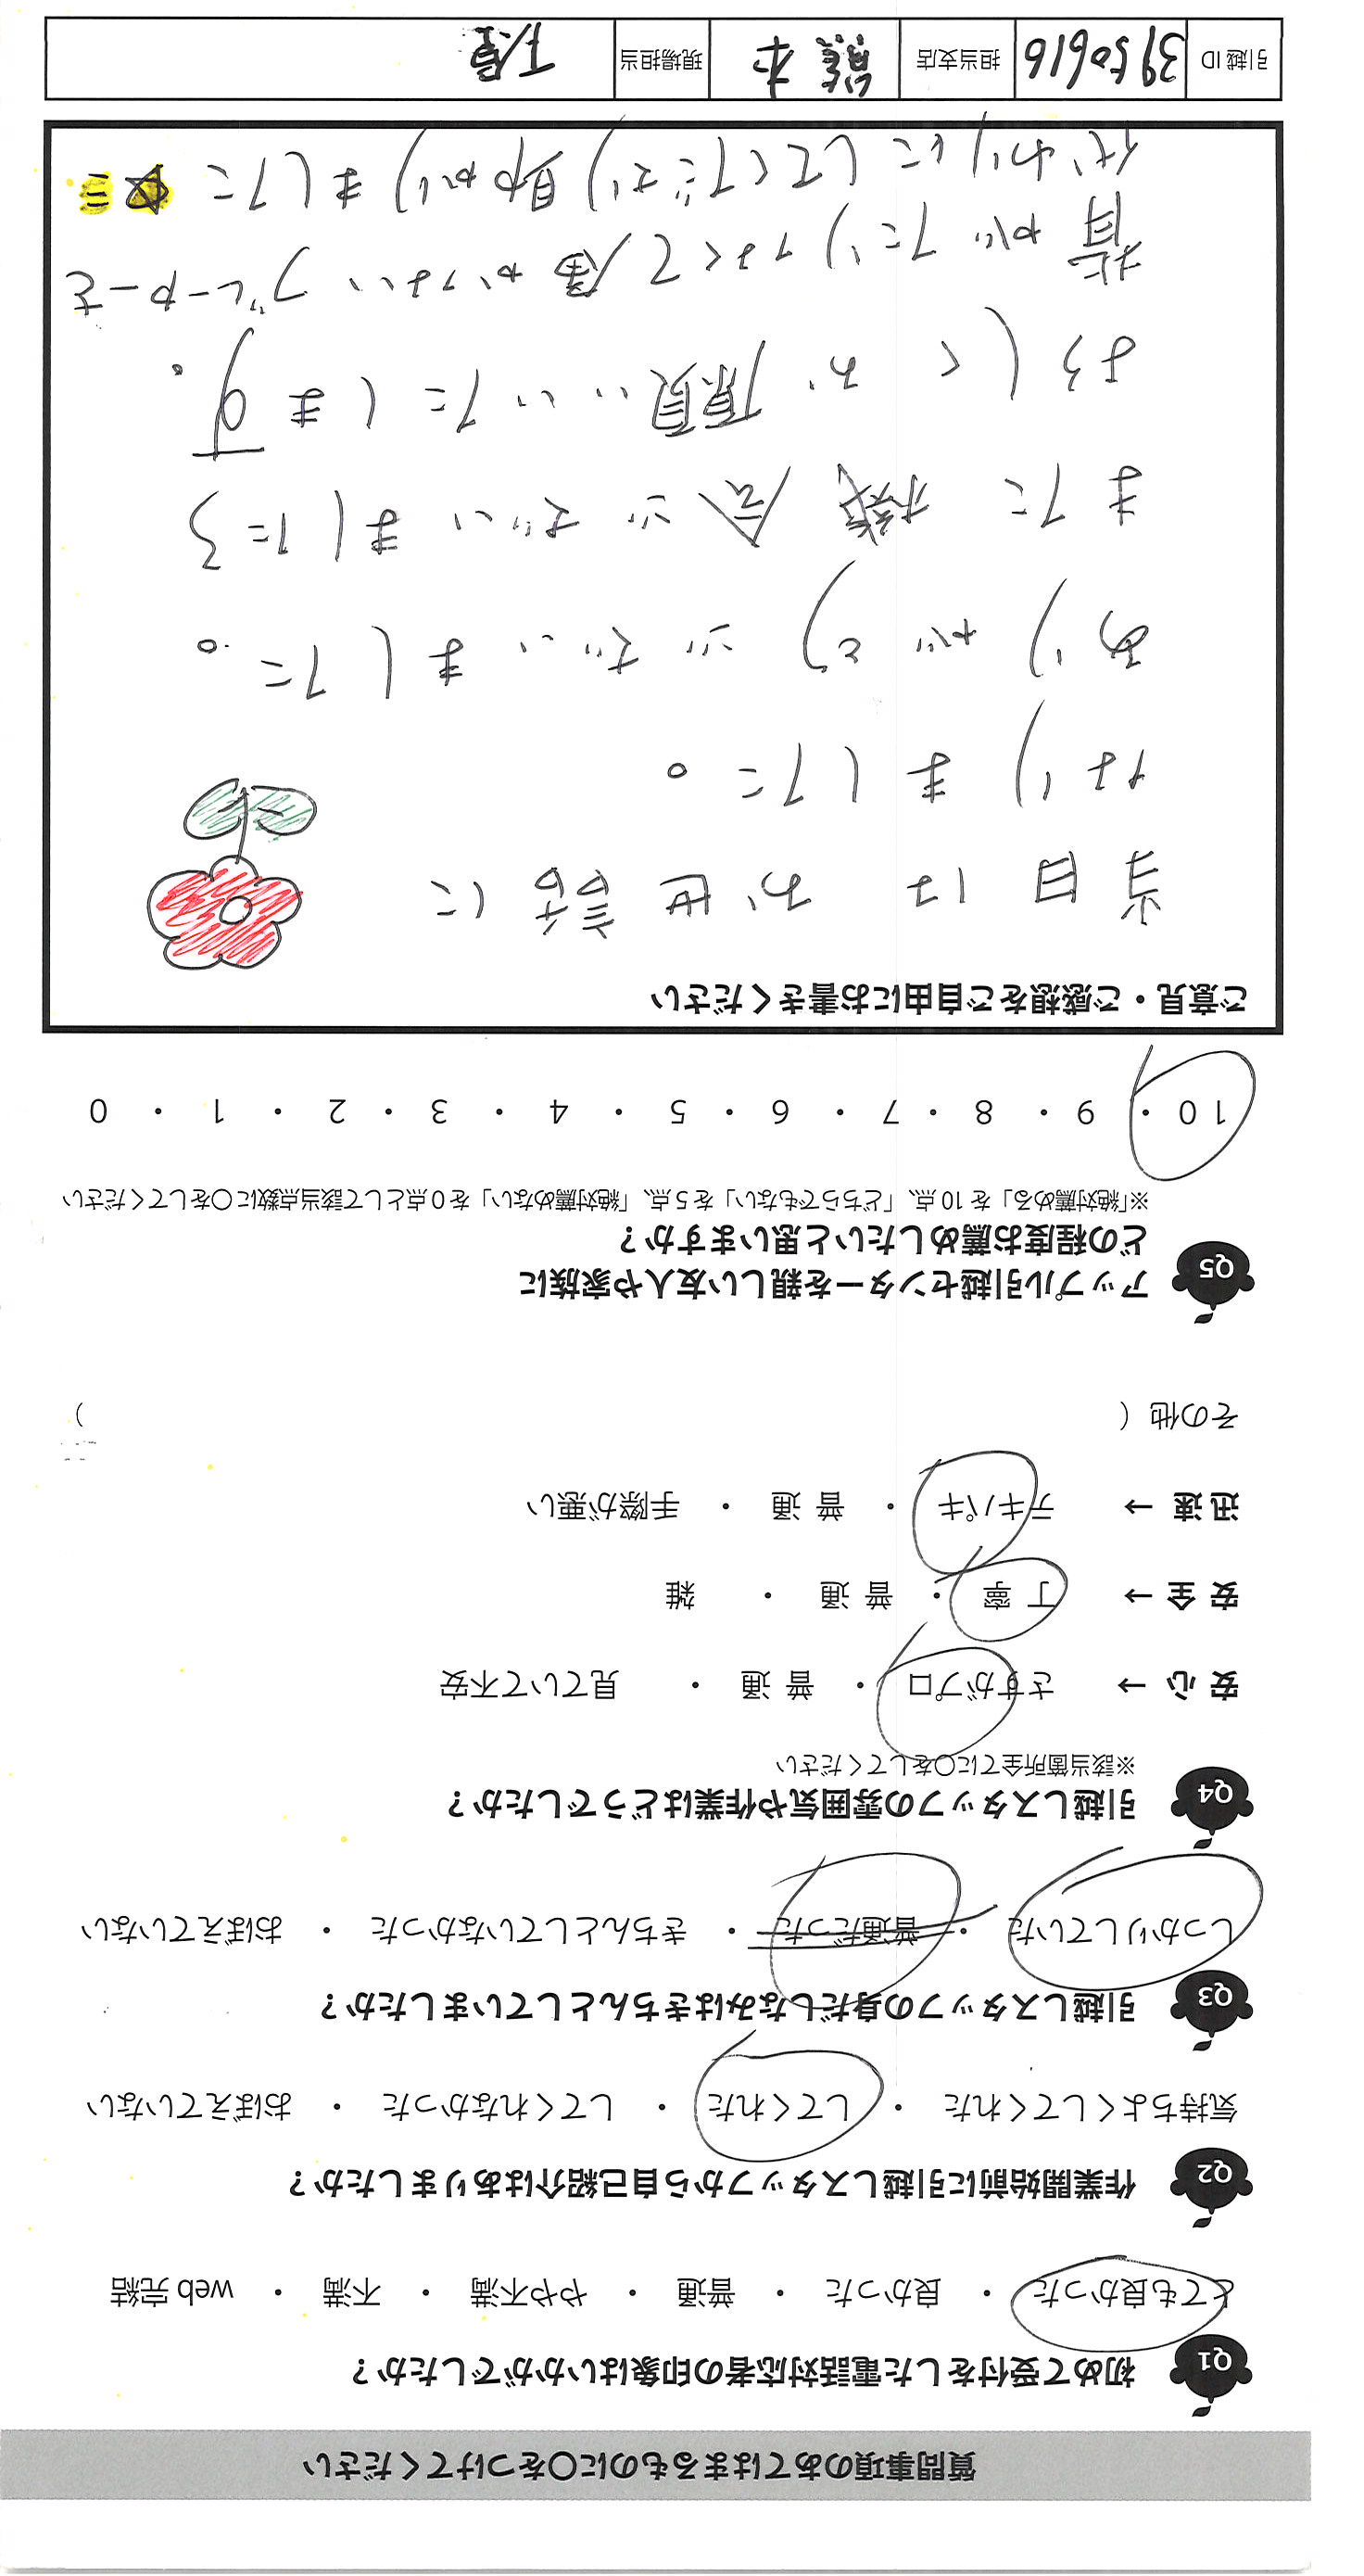 質問事項のあてはまるものに〇をつけてください
Q1 初めて受付をした電話対応者の印象はいかがでしたか？
とても良かった ・ 良かった ・ 普通 ・ やや不満 ・ 不満 ・ web 完結
Q2 作業開始前に引越しスタッフから自己紹介はありましたか？
気持ちよくしてくれた ・ してくれた ・ してくれなかった ・ おぼえていない
Q3 引越しスタッフの身だしなみはきちんとしていましたか？
しっかりしていた ・ 普通だった ・ きちんとしていなかった ・ おぼえていない
Q4 引越しスタッフの雰囲気や作業はどうでしたか？
※該当箇所全てに〇をしてください
安 心 → さすがプロ ・ 普 通 ・ 見ていて不安
安 全 → 丁 寧 ・ 普 通 ・ 雑
迅 速 → テキパキ ・ 普 通 ・ 手際が悪い
その他 （ ）
Q5 アップル引越センターを親しい友人や家族に
どの程度お薦めしたいと思いますか？
※「絶対薦める」を 10 点、「どちらでもない」を 5 点、「絶対薦めない」を 0 点として該当点数に〇をしてください
10 ・ 9 ・ 8 ・ 7 ・ 6 ・ 5 ・ 4 ・ 3 ・ 2 ・ 1 ・ 0
ご意見・ご感想をご自由にお書きください
当日はお世話に
なりました。
ありがとうございました。
また機会ございましたら
よろしくお願いいたします。
背がたりなくて届かないブレーカーを
代わりにしてくださり助かりました
引越 ID 3950616 担当支店 熊本 現場担当